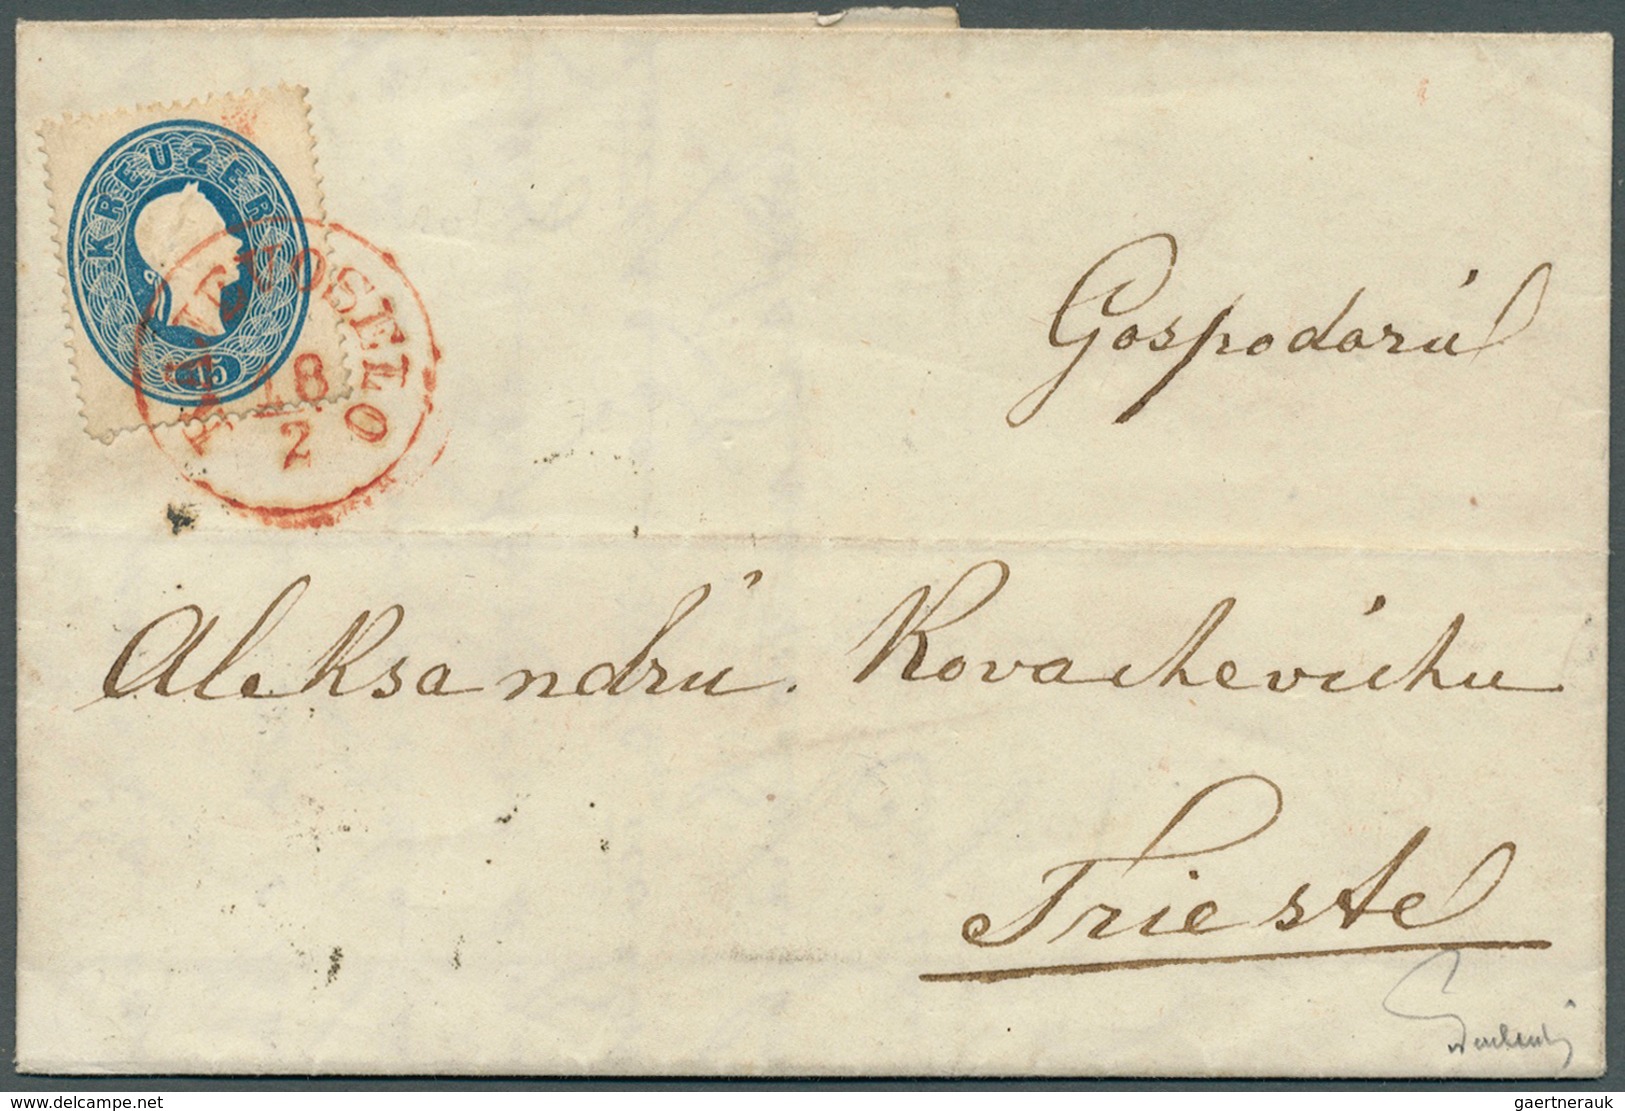 KREUZER
15
18
2
Gospodarú
Aleksandrú. Kovachevichu
Trieste
delcampe.net
gaertnerauk